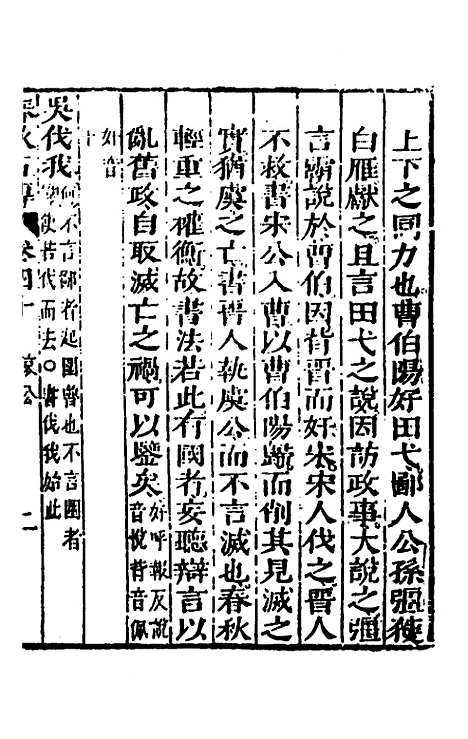 上下之同力也曹伯陽好田弋鄙人公孫彊獲
白雁獻之且言田弋之說因訪政事大說之彊
言霸說於曹伯因背晉而奸宋宋人伐之晉人
不救書宋公入曹以曹伯陽歸而削其見滅之
實猶虞之亡書晉人執虞公而不言滅也春秋
輕重之權衡故書法若此有國者妄聽辯言以
亂舊政自取滅亡之禍可以鑒矣好呼報反說
音悅背音佩
奸音
干
吳伐我何不言鄙者起圍魯也不言圍者
若伐而去○書伐我始此
春秋 卷四十 哀公 二